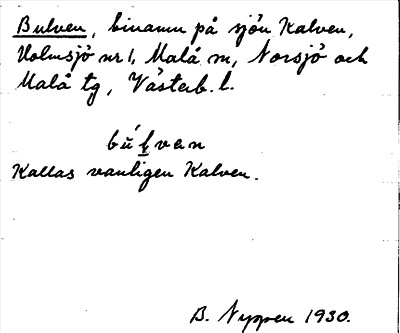 Bulven, binamn på sjön Kalven,
Holmsjö nr 1, Malå sn, Norsjö och
Malå tg, Västerb. l.
bú̆l̠van
Kallas vanligen Kalven.
B. Nyppen 1930.